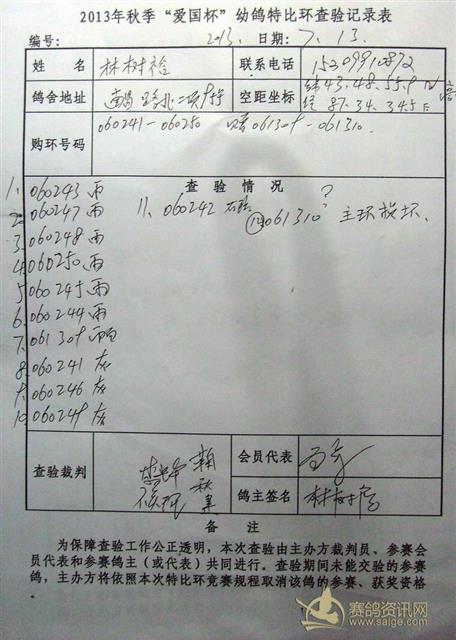 2013年秋季“爱国杯”幼鸽特比环查验记录表
编号： 2013. 日期：7. 13.
姓名 林树 联系电话 15209910872
鸽舍地址 空距坐标 纬43.48.55.9N
经 87.34.345E
购环号码 060241-060250 061309-061310
查验情况
1. 060243 雨
2. 060247 雨 11. 060242 ?
3. 060248 雨 ⑫061310 主环损坏.
4. 060250 雨
5. 060245 雨
6. 060244 雨
7. 061309 雨白
8. 060241 灰
9. 060246 灰
10. 060249 灰
查验裁判 会员代表
鸽主签名 林树
备 注
为保障查验工作公正透明，本次查验由主办方裁判员、参赛会
员代表和参赛鸽主（或代表）共同进行。查验期间未能交验的参赛
鸽，主办方将依照本次特比环竞赛规程取消该鸽的参赛、获奖资格
赛鸽资讯网
www.saige.com